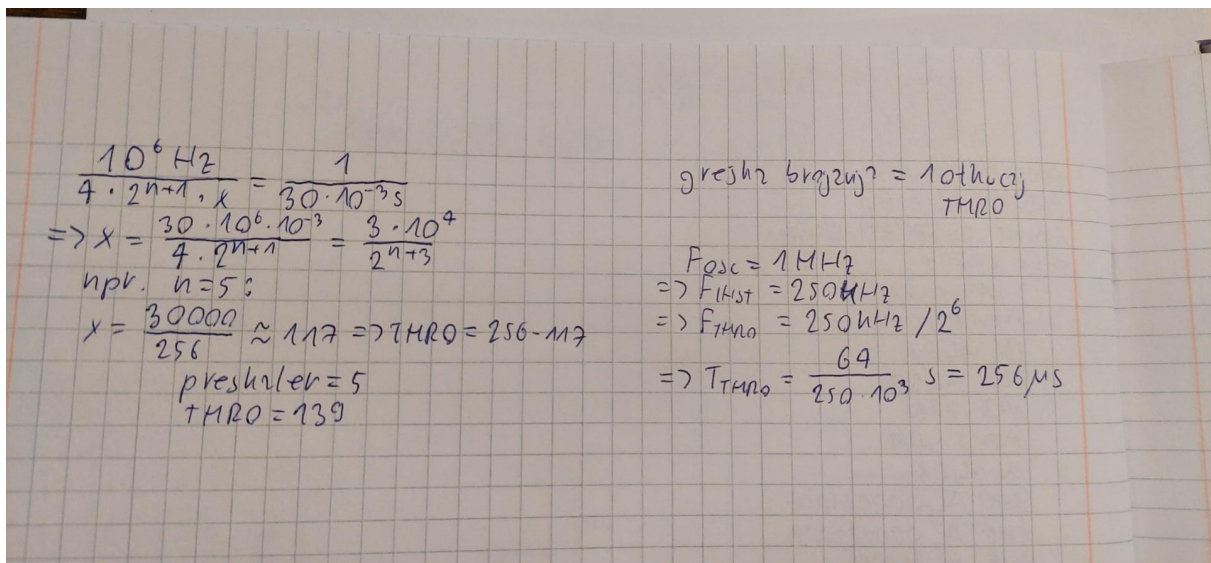 10⁶ Hz / (4 · 2ⁿ⁺¹ · x) = 1 / (30 · 10⁻³ s)
=> x = (30 · 10⁶ · 10⁻³) / (4 · 2ⁿ⁺¹) = (3 · 10⁴) / 2ⁿ⁺³
npr. n=5:
x = 30000 / 256 ≈ 117 => TMR0 = 256-117
preskaler = 5
TMR0 = 139
greska brojanja = 1 otkucaj
TMR0
Fosc = 1MHz
=> FINST = 250kHz
=> FTMR0 = 250kHz / 2⁶
=> TTMR0 = 64 / (250 · 10³) s = 256 μs